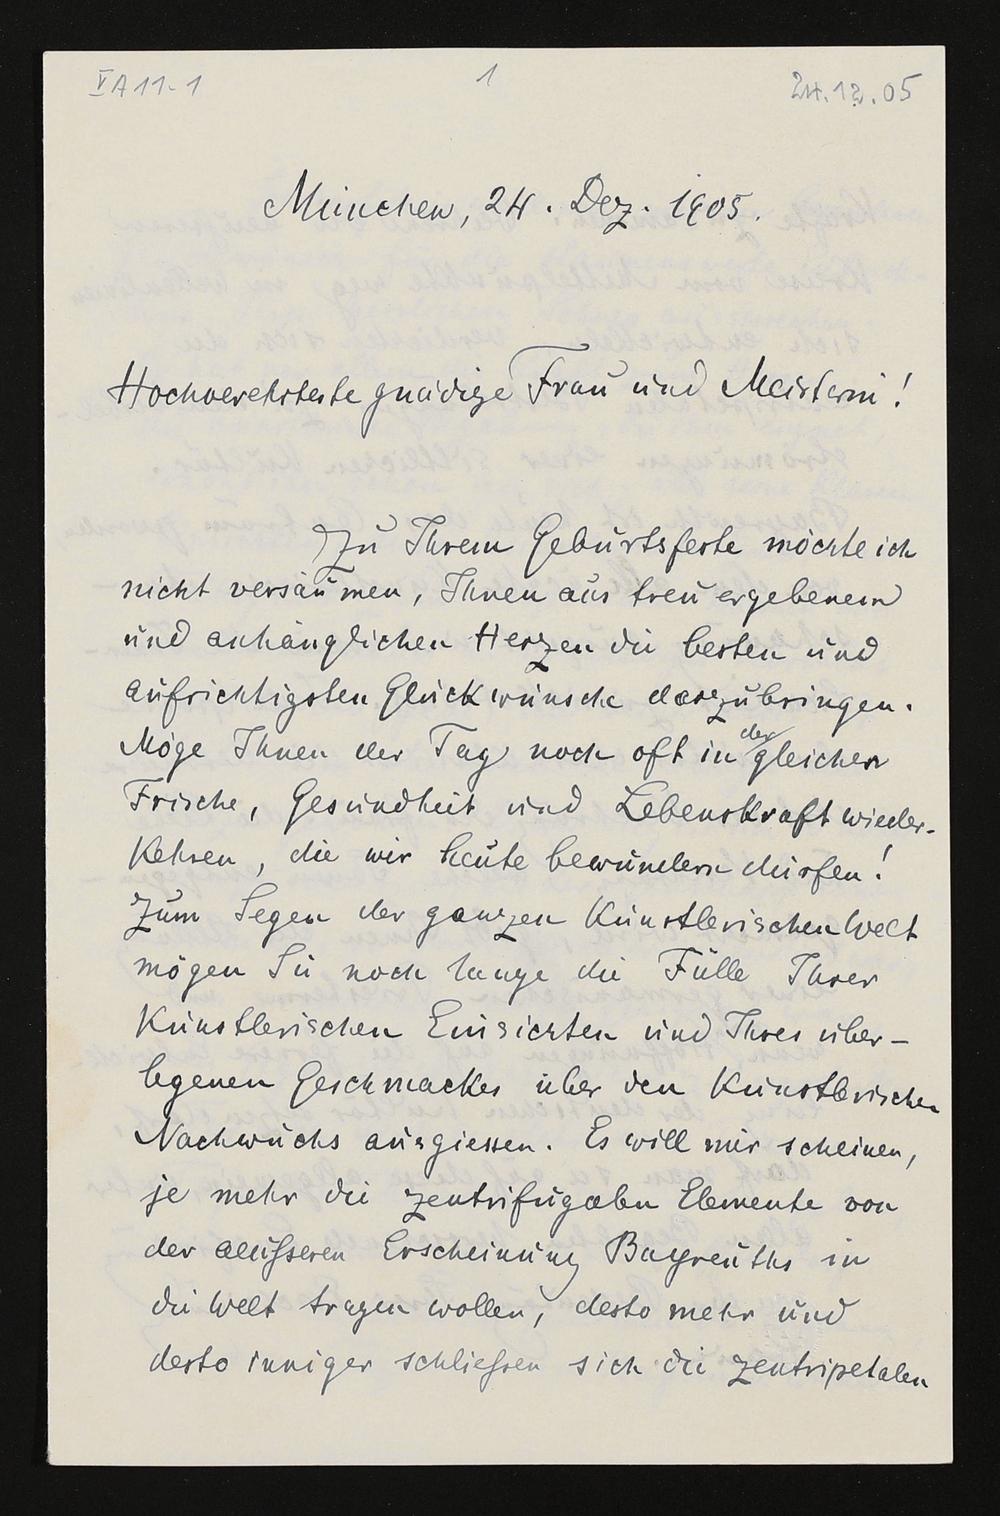 VA11-1 1 24.12.05
München, 24. Dez. 1905.
Hochverehrteste gnädige Frau und Meisterin!
Zu Ihrem Geburtsfeste möchte ich
nicht versäumen, Ihnen aus treu ergebenem
und anhänglichen Herzen die besten und
aufrichtigsten Glückwünsche darzubringen.
Möge Ihnen der Tag noch oft in der gleichen
Frische, Gesundheit und Lebenskraft wieder-
kehren, die wir heute bewundern dürfen!
Zum Segen der ganzen künstlerischen Welt
mögen Sie noch lange die Fülle Ihrer
künstlerischen Einsichten und Ihres über-
legenen Geschmackes über den künstlerischen
Nachwuchs ausgiessen. Es will mir scheinen,
je mehr die zentrifugalen Elemente von
der aeußeren Erscheinung Bayreuths in
die Welt tragen wollen, desto mehr und
desto inniger schließen sich die zentripetalen